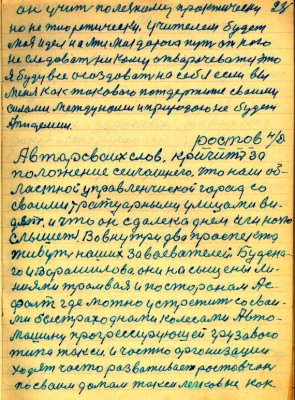 он учит полезному практически 28
но не теоретически. Учителем будет
моя идея на
не следовать никому отворачевать это
я буду все создовать на себя если вы
меня как такового потдержите своими
силами между нами и природою не будет
эпидемии.
ростов н/д
Автор своих слов, кричит за
положение сегоашнего, это наш об-
ластной управленческой город со
своими тратуарными улицами ви-
дят, и что он сделал днем или ночю
слышет. Вовнутри два проспекта
живут, наших завоевателей Будено-
го и Ворашилова они на сыщены ли-
ниями трамвая и посторонам Ас-
фальт где можно устретит со сваи-
ми быстраходнами колесами Авто-
машину прогрессирующей грузавого
типа такси. и частно организации
ходят часто развативает ростовчан
по своим домам такси легковые как